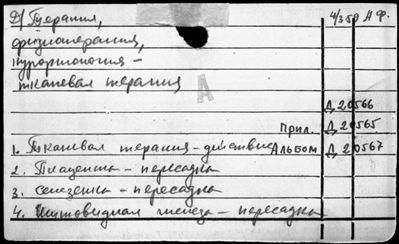 Д) Терапия, 4/3 59 А Ф.
физиотерапия,
курортология –
тканевая терапия
А
Д 20566
Прил. Д 20565
1. Тканевая терапия – действие Альбом Д 20567
2. Плацента – пересадка
3. Селезенка – пересадка
4. Щитовидная железа – пересадка